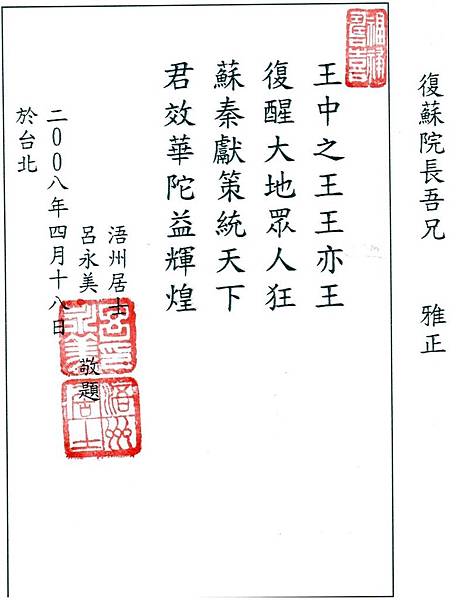 復蘇院長吾兄 雅正
福祿
壽喜
王中之王王亦王
復醒大地眾人狂
蘇秦獻策統天下
君效華陀益輝煌
浯州居士
呂永美 敬題
呂印
永美
浯州
居士
二００八年四月十八日
於台北